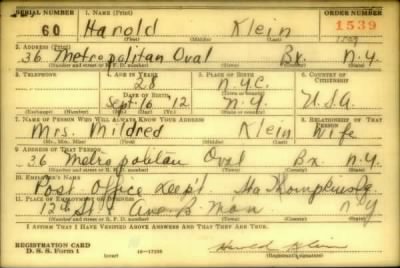 SERIAL NUMBER 1. NAME (Print) ORDER NUMBER
60 Harold Klein 1539
(First) (Middle) (Last)
2. ADDRESS (Print)
36 Metropolitan Oval Bx. N.Y.
(Number and street or R. F. D. number) (Town) (County) (State)
3. TELEPHONE 4. AGE IN YEARS 5. PLACE OF BIRTH 6. COUNTRY OF CITIZENSHIP
28 N.Y.C.
DATE OF BIRTH (Town or county)
Sept. 16 12 N.Y. U.S.A.
(Exchange) (Number) (Mo.) (Day) (Yr.) (State or country)
7. NAME OF PERSON WHO WILL ALWAYS KNOW YOUR ADDRESS 8. RELATIONSHIP OF THAT PERSON
Mrs. Mildred Klein Wife
(Mr., Mrs., Miss) (First) (Middle) (Last)
9. ADDRESS OF THAT PERSON
36 Metropolitan Oval Bx N.Y.
(Number and street or R. F. D. number) (Town) (County) (State)
10. EMPLOYER'S NAME
Post Office Dep't
11. PLACE OF EMPLOYMENT OR BUSINESS
12th St. & Ave. B. Man N Y
(Number and street or R. F. D. number) (Town) (County) (State)
I AFFIRM THAT I HAVE VERIFIED ABOVE ANSWERS AND THAT THEY ARE TRUE.
REGISTRATION CARD
D. S. S. Form 1 16—17105 Harold Klein
(over)